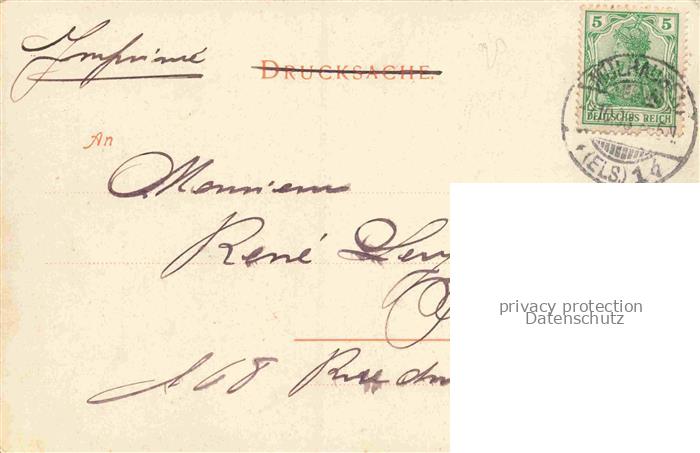 Imprimé
DRUCKSACHE.
5 5
DEUTSCHES REICH
(ELS.) 1 d
An
Monsieur
René
168 Rue
privacy protection
Datenschutz